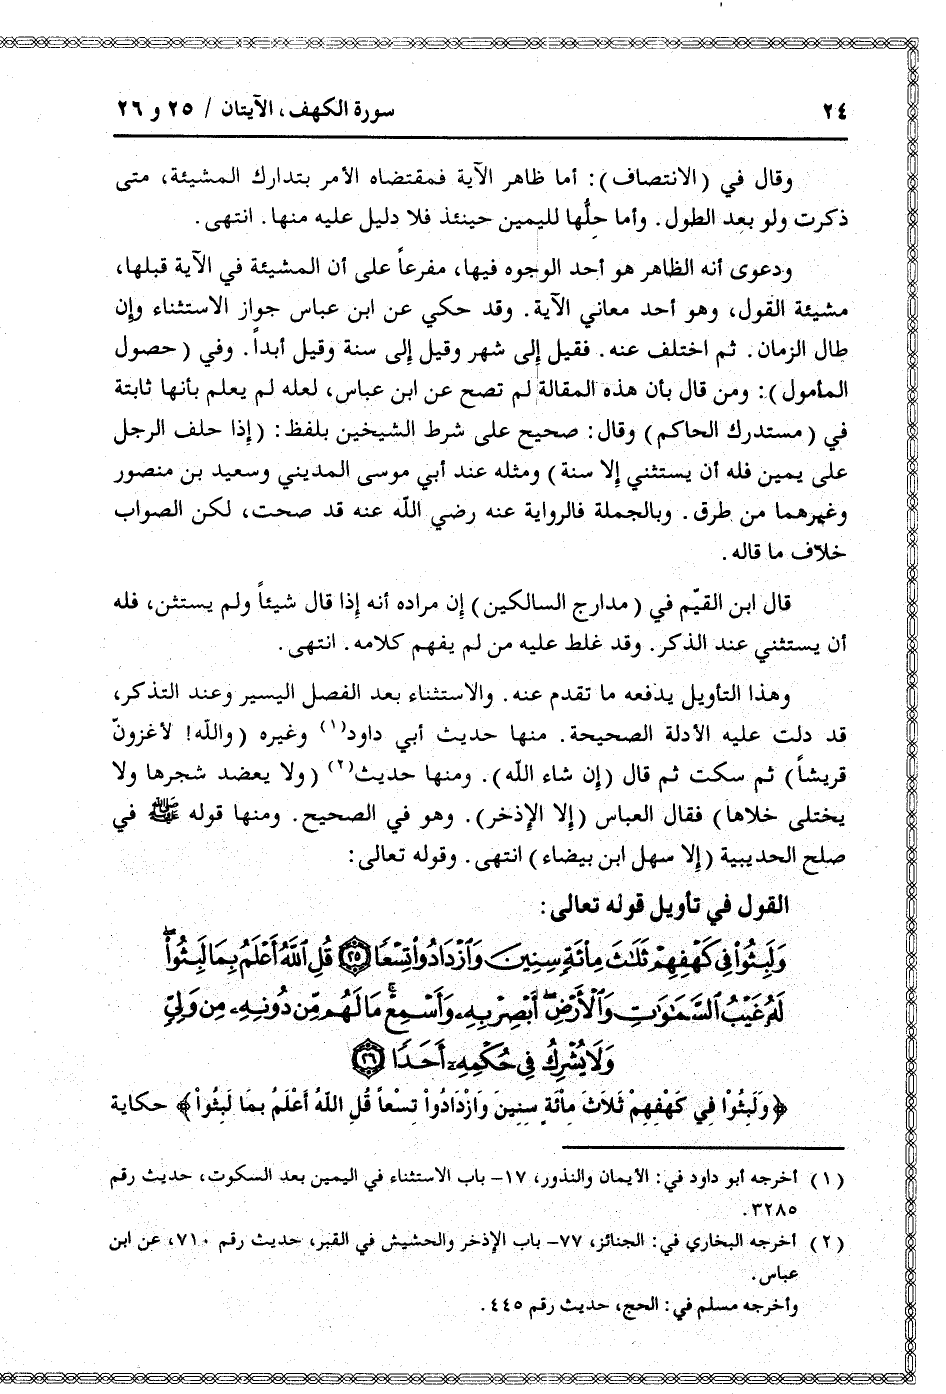 ٢٤
سورة الكهف، الآيتان / ٢٥ و ٢٦
وقال في (الانتصاف): أما ظاهر الآية فمقتضاه الأمر بتدارك المشيئة، متى
ذكرت ولو بعد الطول. وأما حِلُّها لليمين حينئذ فلا دليل عليه منها. انتهى.
ودعوى أنه الظاهر هو أحد الوجوه فيها، مفرعاً على أن المشيئة في الآية قبلها،
مشيئة القول، وهو أحد معاني الآية. وقد حكي عن ابن عباس جواز الاستثناء وإن
طال الزمان. ثم اختلف عنه. فقيل إلى شهر وقيل إلى سنة وقيل أبداً. وفي (حصول
المأمول): ومن قال بأن هذه المقالة لم تصح عن ابن عباس، لعله لم يعلم بأنها ثابتة
في (مستدرك الحاكم) وقال: صحيح على شرط الشيخين بلفظ: (إذا حلف الرجل
على يمين فله أن يستثني إلا سنة) ومثله عند أبي موسى المديني وسعيد بن منصور
وغيرهما من طرق. وبالجملة فالرواية عنه رضي اللّه عنه قد صحت، لكن الصواب
خلاف ما قاله.
قال ابن القيّم في (مدارج السالكين) إن مراده أنه إذا قال شيئاً ولم يستثن، فله
أن يستثني عند الذكر. وقد غلط عليه من لم يفهم كلامه. انتهى.
وهذا التأويل يدفعه ما تقدم عنه. والاستثناء بعد الفصل اليسير وعند التذكر،
قد دلت عليه الأدلة الصحيحة. منها حديث أبي داود(١) وغيره (واللّه! لأغزونّ
قريشاً) ثم سكت ثم قال (إن شاء اللّه). ومنها حديث(٢) (ولا يعضد شجرها ولا
يختلى خلاها) فقال العباس (إلا الإذخر). وهو في الصحيح. ومنها قوله ﷺ في
صلح الحديبية (إلا سهل ابن بيضاء) انتهى. وقوله تعالى:
القول في تأويل قوله تعالى:
وَلَبِثُواْ فِي كَهْفِهِمْ ثَلَٰثَ مِاْئَةٍ سِنِينَ وَٱزْدَادُواْ تِسْعًا ٢٥ قُلِ ٱللَّهُ أَعْلَمُ بِمَا لَبِثُواْۖ
لَهُۥ غَيْبُ ٱلسَّمَٰوَٰتِ وَٱلْأَرْضِۖ أَبْصِرْ بِهِۦ وَأَسْمِعْۚ مَا لَهُم مِّن دُونِهِۦ مِن وَلِيٍّ
وَلَا يُشْرِكُ فِي حُكْمِهِۦٓ أَحَدًا ٢٦
﴿وَلَبِثُواْ فِي كَهْفِهِمْ ثَلَاثَ مِائَةٍ سِنِينَ وَازْدَادُواْ تِسْعاً قُلِ اللَّهُ أَعْلَمُ بِمَا لَبِثُواْ﴾ حكاية
(١) أخرجه أبو داود في: الأيمان والنذور، ١٧- باب الاستثناء في اليمين بعد السكوت، حديث رقم
٣٢٨٥.
(٢) أخرجه البخاري في: الجنائز، ٧٧- باب الإذخر والحشيش في القبر، حديث رقم ٧١٠، عن ابن
عباس.
وأخرجه مسلم في: الحج، حديث رقم ٤٤٥.